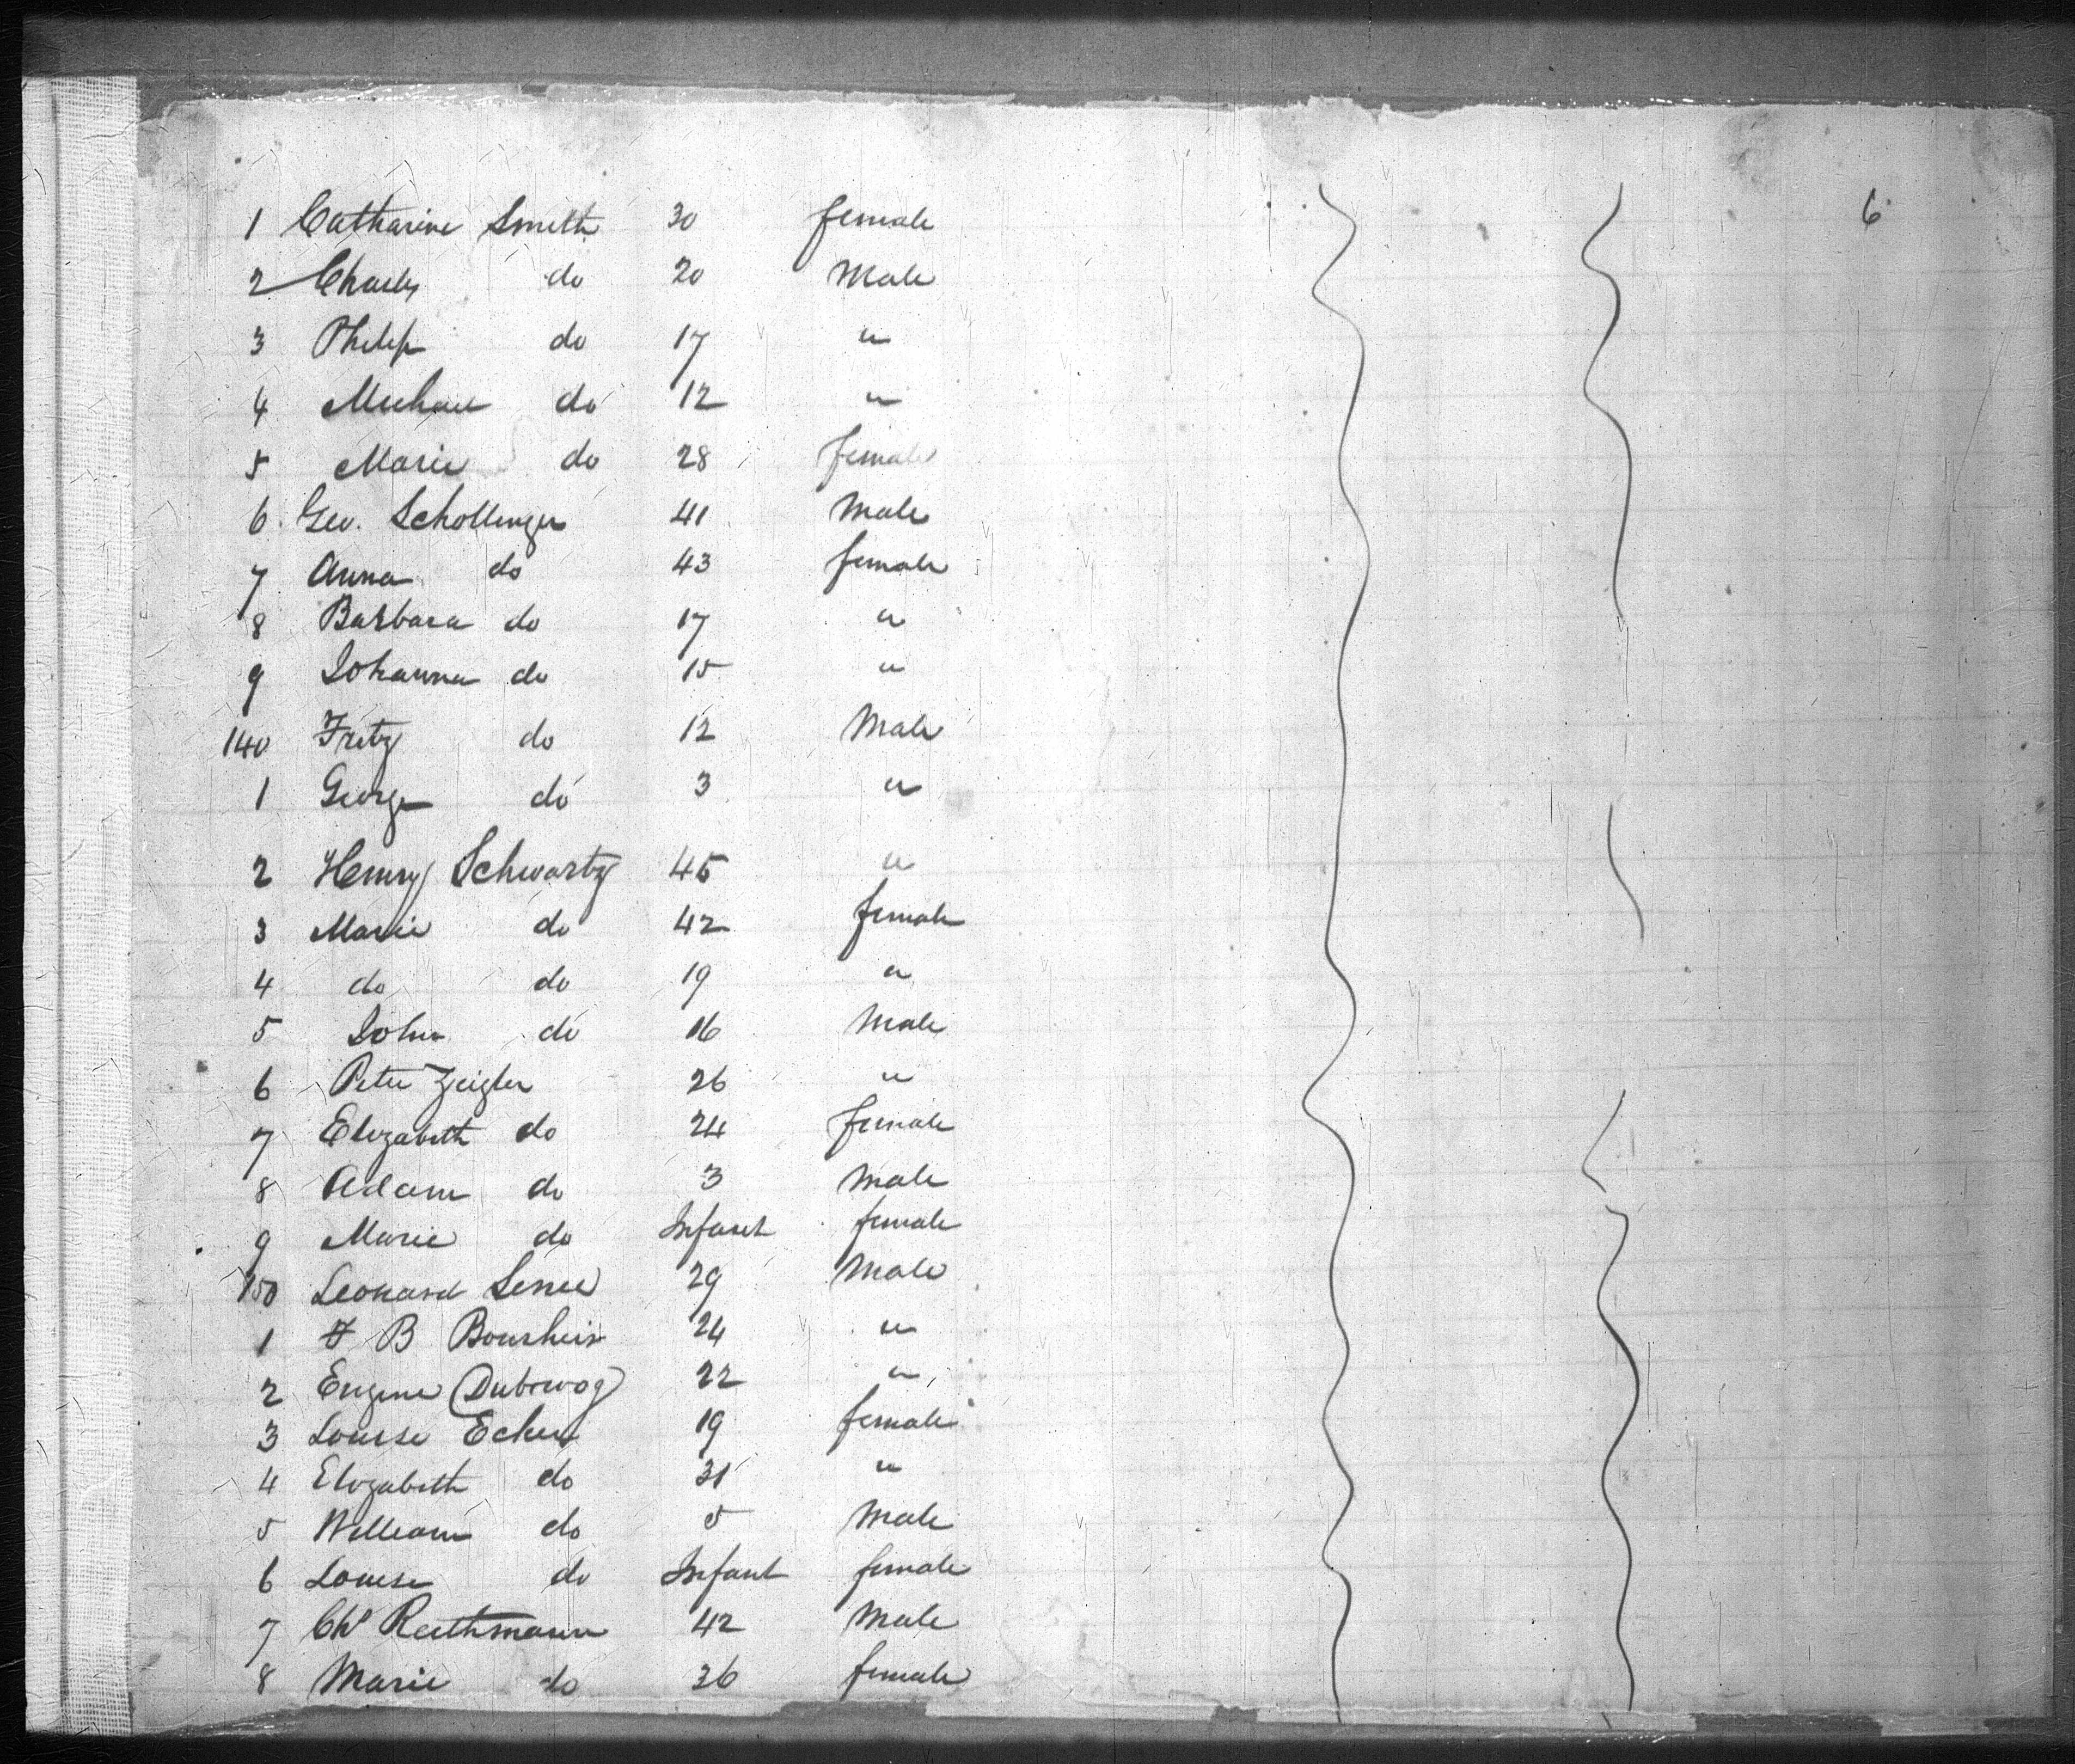 6
1 Catharine Smith 30 female
2 Charles do 20 Male
3 Philip do 17 "
4 Michael do 12 "
5 Marie do 28 female
6 Geo. Schollinger 41 Male
7 Anna do 43 female
8 Barbara do 17 "
9 Johanna do 15 "
140 Fritz do 12 Male
1 George do 3 "
2 Henry Schwartz 45 "
3 Marie do 42 female
4 do do 19 "
5 John do 16 Male
6 Peter Zeigler 26 "
7 Elizabeth do 24 female
8 Adam do 3 Male
9 Marie do Infant female
150 Leonard 29 Male
1 F B 24 "
2 Eugene 22 "
3 Louise Ecker 19 female
4 Elizabeth do 31 "
5 William do 5 Male
6 Louise do Infant female
7 Chs Reithmann 42 Male
8 Marie do 36 female